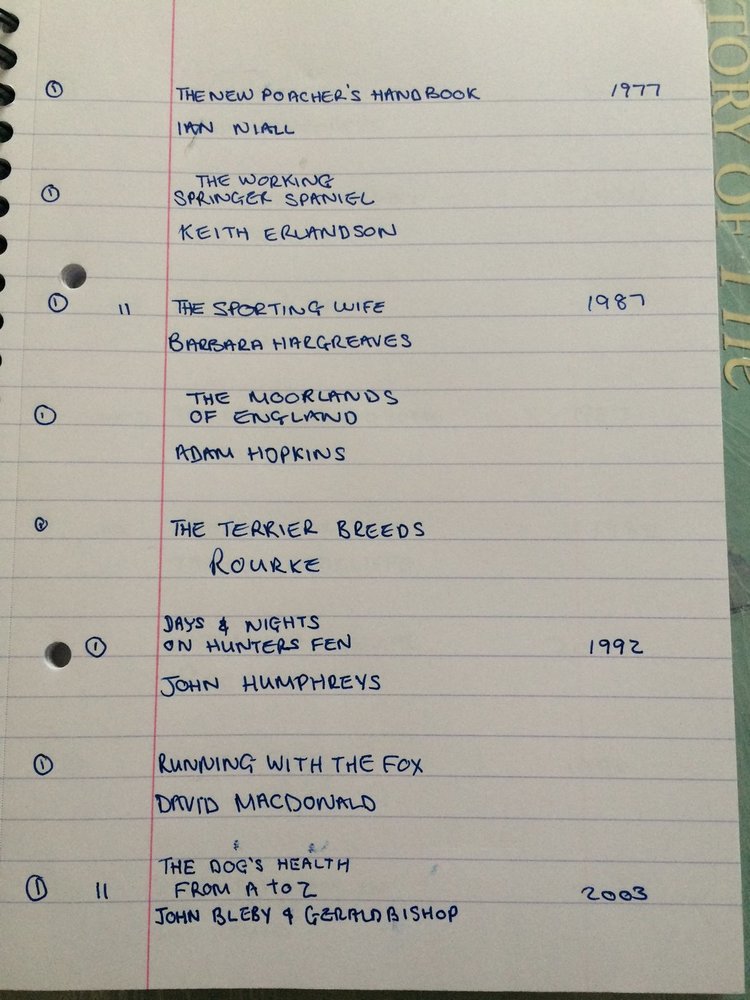 ① THE NEW POACHER'S HANDBOOK 1977
IAN NIALL
THE WORKING
① SPRINGER SPANIEL
KEITH ERLANDSON
① 11 THE SPORTING WIFE 1987
BARBARA HARGREAVES
THE MOORLANDS
① OF ENGLAND
ADAM HOPKINS
THE TERRIER BREEDS
ROURKE
DAYS & NIGHTS
① ON HUNTERS FEN 1992
JOHN HUMPHREYS
① RUNNING WITH THE FOX
DAVID MACDONALD
THE DOG'S HEALTH
① 11 FROM A to Z 2003
JOHN BLEBY & GERALD BISHOP
TORY OF THE